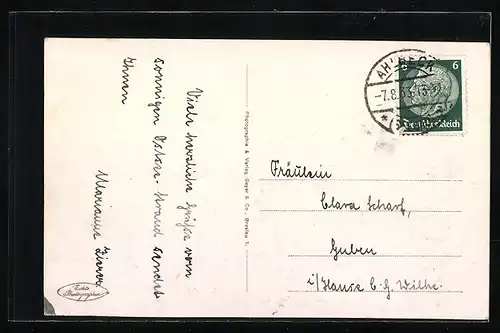 Viele herzliche Grüße vom
sonnigen Ostsee-Strand sendet
Ihnen
Marianne
Photographie & Verlag Geyer & Co., Breslau
Echte
Photographie
AHLBECK
-7.8.
6
Deutsches Reich
Fräulein
Clara Scharf,
Guben
i/Hause b. G. Wilke.